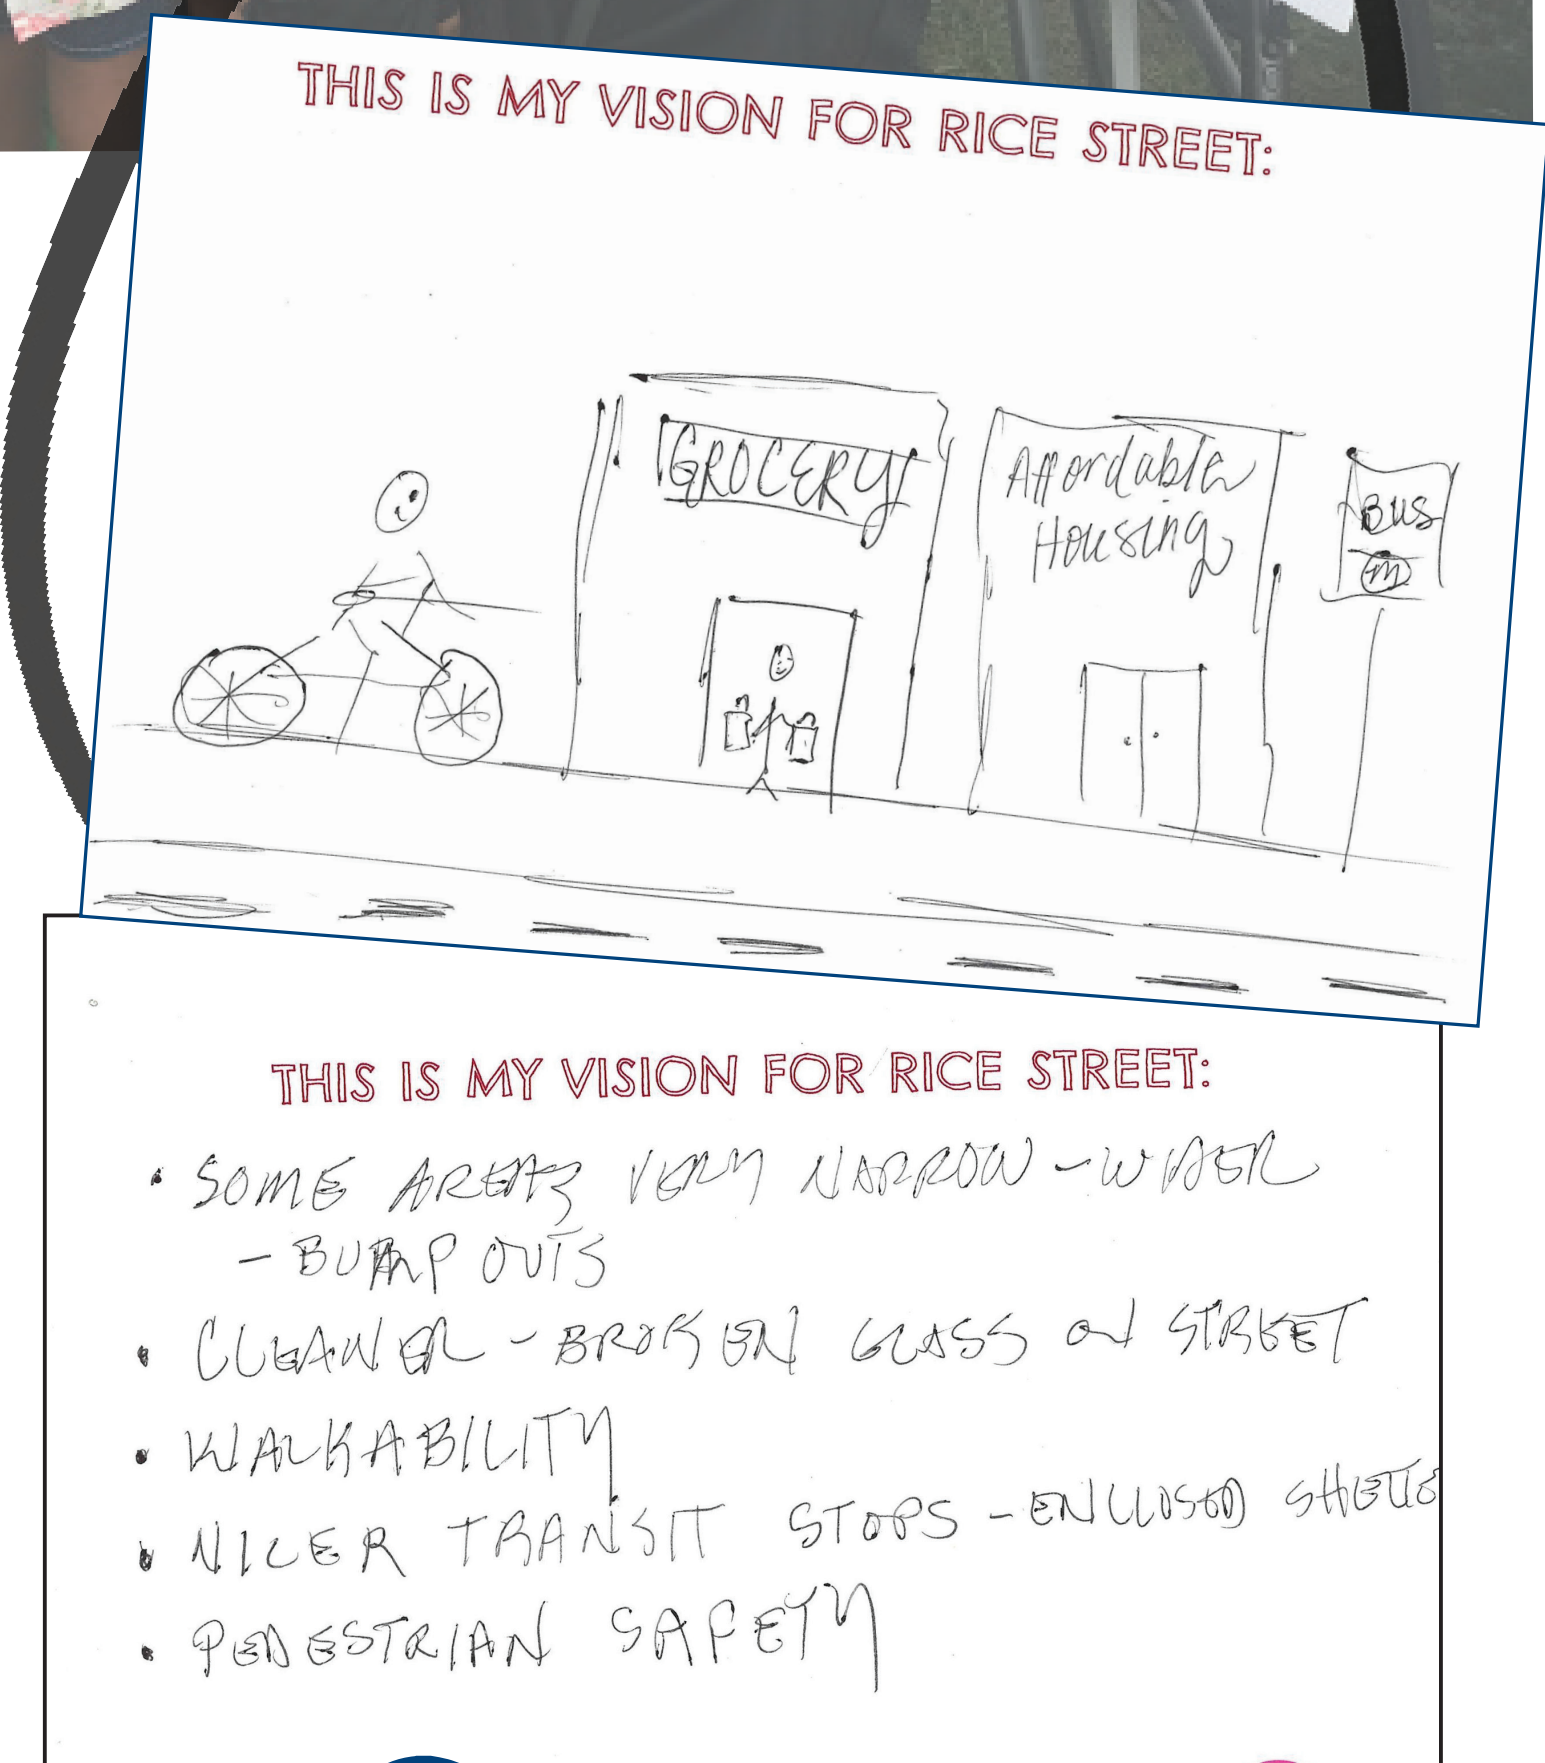 THIS IS MY VISION FOR RICE STREET:
GROCERY
Affordable
Housing
BUS
m
THIS IS MY VISION FOR RICE STREET:
• SOME AREAS VERY NARROW - WIDER
- BUMP OUTS
• CLEANER - BROKEN GLASS ON STREET
• WALKABILITY
• NICER TRANSIT STOPS - ENCLOSED SHELTE
• PEDESTRIAN SAFETY